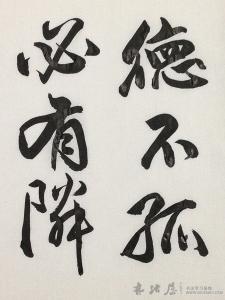 德不孤
必有隣